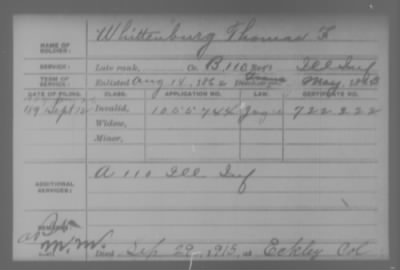 Whittenburg Thomas F
NAME OF SOLDIER:
SERVICE: Late rank, Co. B, 110 Reg't Ill Inf
TERM OF SERVICE: Enlisted Aug 14, 1862 Trans May, 1863
DATE OF FILING. CLASS. APPLICATION NO. LAW. CERTIFICATE NO.
Sept 12 Invalid, 1055744 722222
Widow,
Minor,
ADDITIONAL SERVICES: A 110 Ill Inf
REMARKS:
Died Sep 29, 1915, at Eckley Col